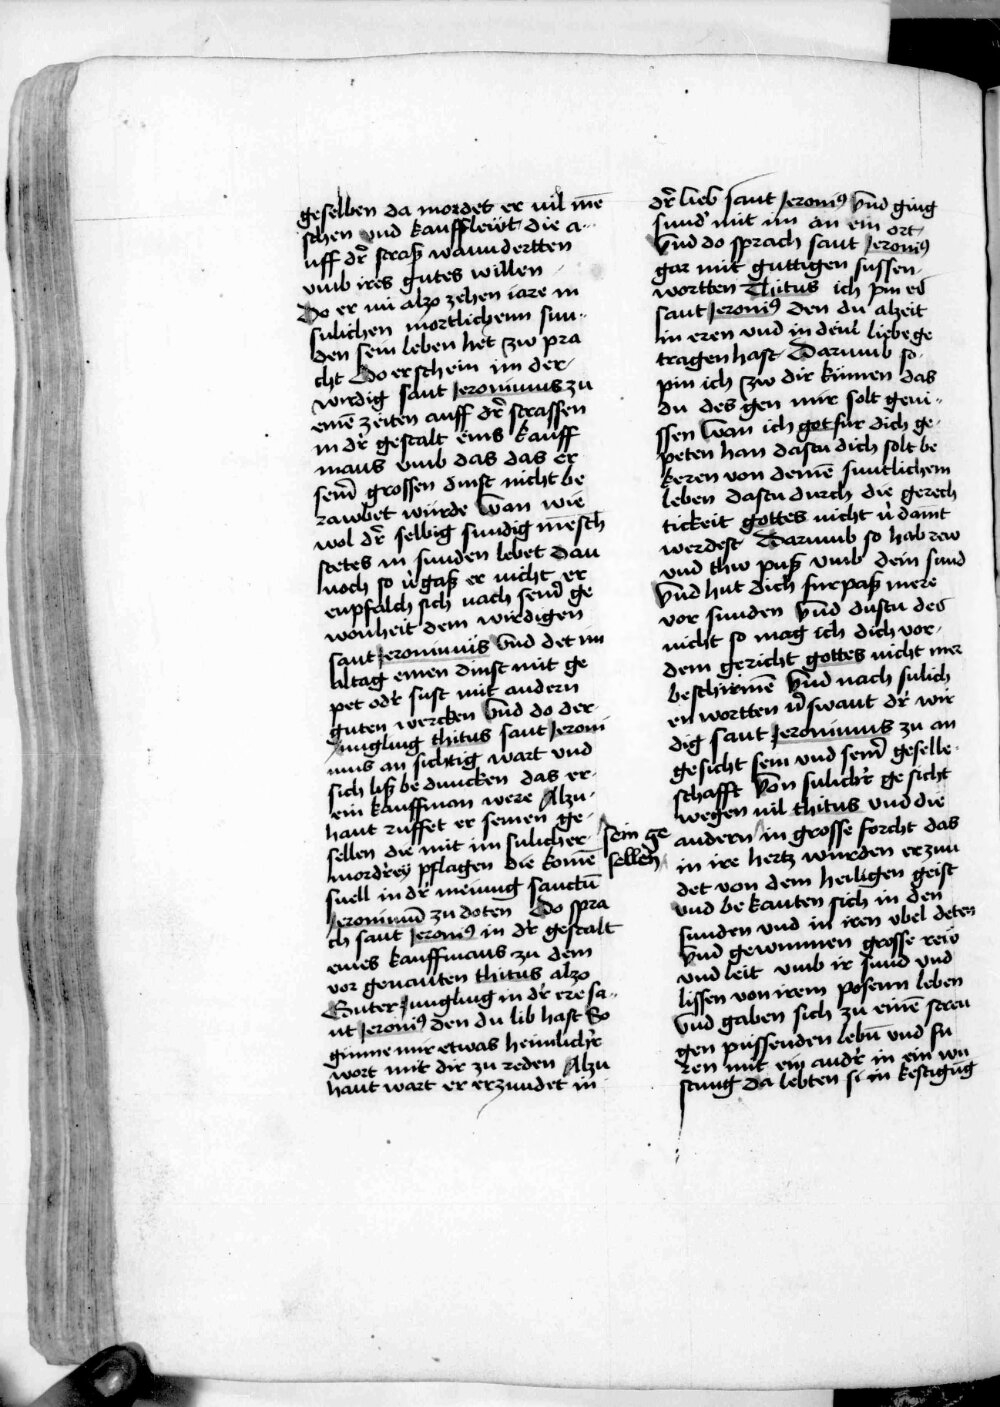 geselben da mordet er vil me̅
schen vnd kaufflewt die a-
uff dr̛ straß wanndertten
vmb ires gutes willen
Do er nu alzo zehen iare in
sulichen mortlichenn sun-
den sein leben het zw pra
cht Do erschein im der
wirdig sant Jeronimus zu
eine̅ zeiten auff dr̛ strassen
in dr̛ gestalt eins kauff
mans vmb das das er
sein̛ grossen dinst nicht be
rawbet würde Wan wie
wol dr̛ selbig sundig mensch
stetes in sunden lebet dan
noch so v̛gaß er nicht er
enpfalch sich nach sein̛ ge
wonheit dem wirdigen
sant Jeronimus vnd det im
altag einen dinst mit ge
pet odr̛ sust mit andern
guten wercken Vnd do der
Jungling thitus sant Jeroni
mus an sichtig wart vnd
sich liß beduncken das er
ein kauffman were Alzu
hant ruffet er seinen ge-
sellen die mit im sulicher
mordr̛ey pflagen die kome̅
snell in dr̛ meinung sanctu̅
Jeronimu̅ zu doten Do spra
ch sant Jeroni⁹ in dr̛ gestalt
eines kauffmans zu dem
vor genanten thitus alzo
Guter Jungling in dr̛ ere sa-
nt Jeroni⁹ den du lib hast So
ginne mir etwas heimlichr̛
wort mit dir zu reden Alzu
hant wart er erzundet in
sein ge
sellen
dr̛ lieb sant Jeroni⁹ vnd ging
sund̛ mit im an ein ort
Vnd do sprach sant Jeroni⁹
gar mit guttigen sussen
wortten Thitus ich pin es
sant Jeroni⁹ den du alzeit
in eren vnd in dein̛ liebe ge
tragen hast Darumb so
pin ich zw dir kumen das
du des gen mir solt geni-
ssen Wan ich got fur dich ge-
peten han dastu dich solt be
keren von deine̅ suntlichem
leben dastu durch die gerech
tickeit gottes nicht v̛damt
werdest Darumb so hab rew
vnd thw puß vmb dein sund
Vnd hut dich furpaß mere
vor sunden Vnd dustu des
nicht so mag ich dich vor
dem gericht gottes nicht mer
beschirme̅ Vnd nach sulich
en wortten v̛swant dr̛ wir
dig sant Jeronimus zu an
gesicht sein vnd sein̛ geselle
schafft Von sulichr̛ ge sicht
wegen vil thitus vnd die
andern in grosse forcht das
in ire hertz wurden erzun
det von dem heiligen geist
vnd be kanten sich in den
sunden vnd in iren vbel deten
Vnd gewunnen grosse rew
vnd leit vmb ir sund vnd
lissen von irem posenn leben
Vnd gaben sich zu eine̅ stren
gen püssenden lebn̅ vnd fu
ren mit ein andr̛ in ein wu
stung da lebten si in kestigu̅g